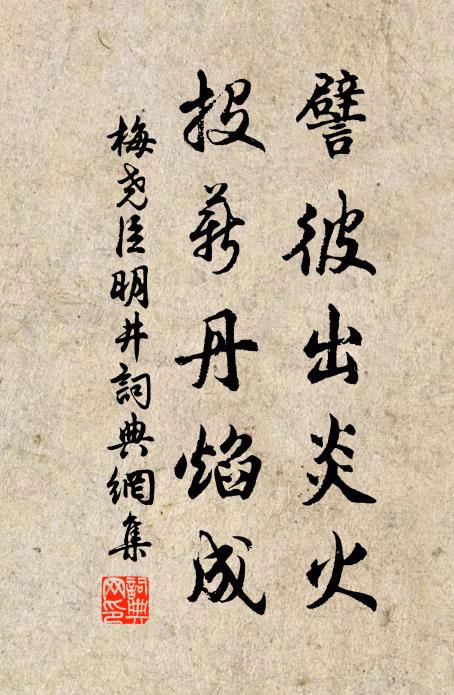 譬彼出炎火
投薪丹焰成
梅尧臣明井詞典網集
詞典
网印